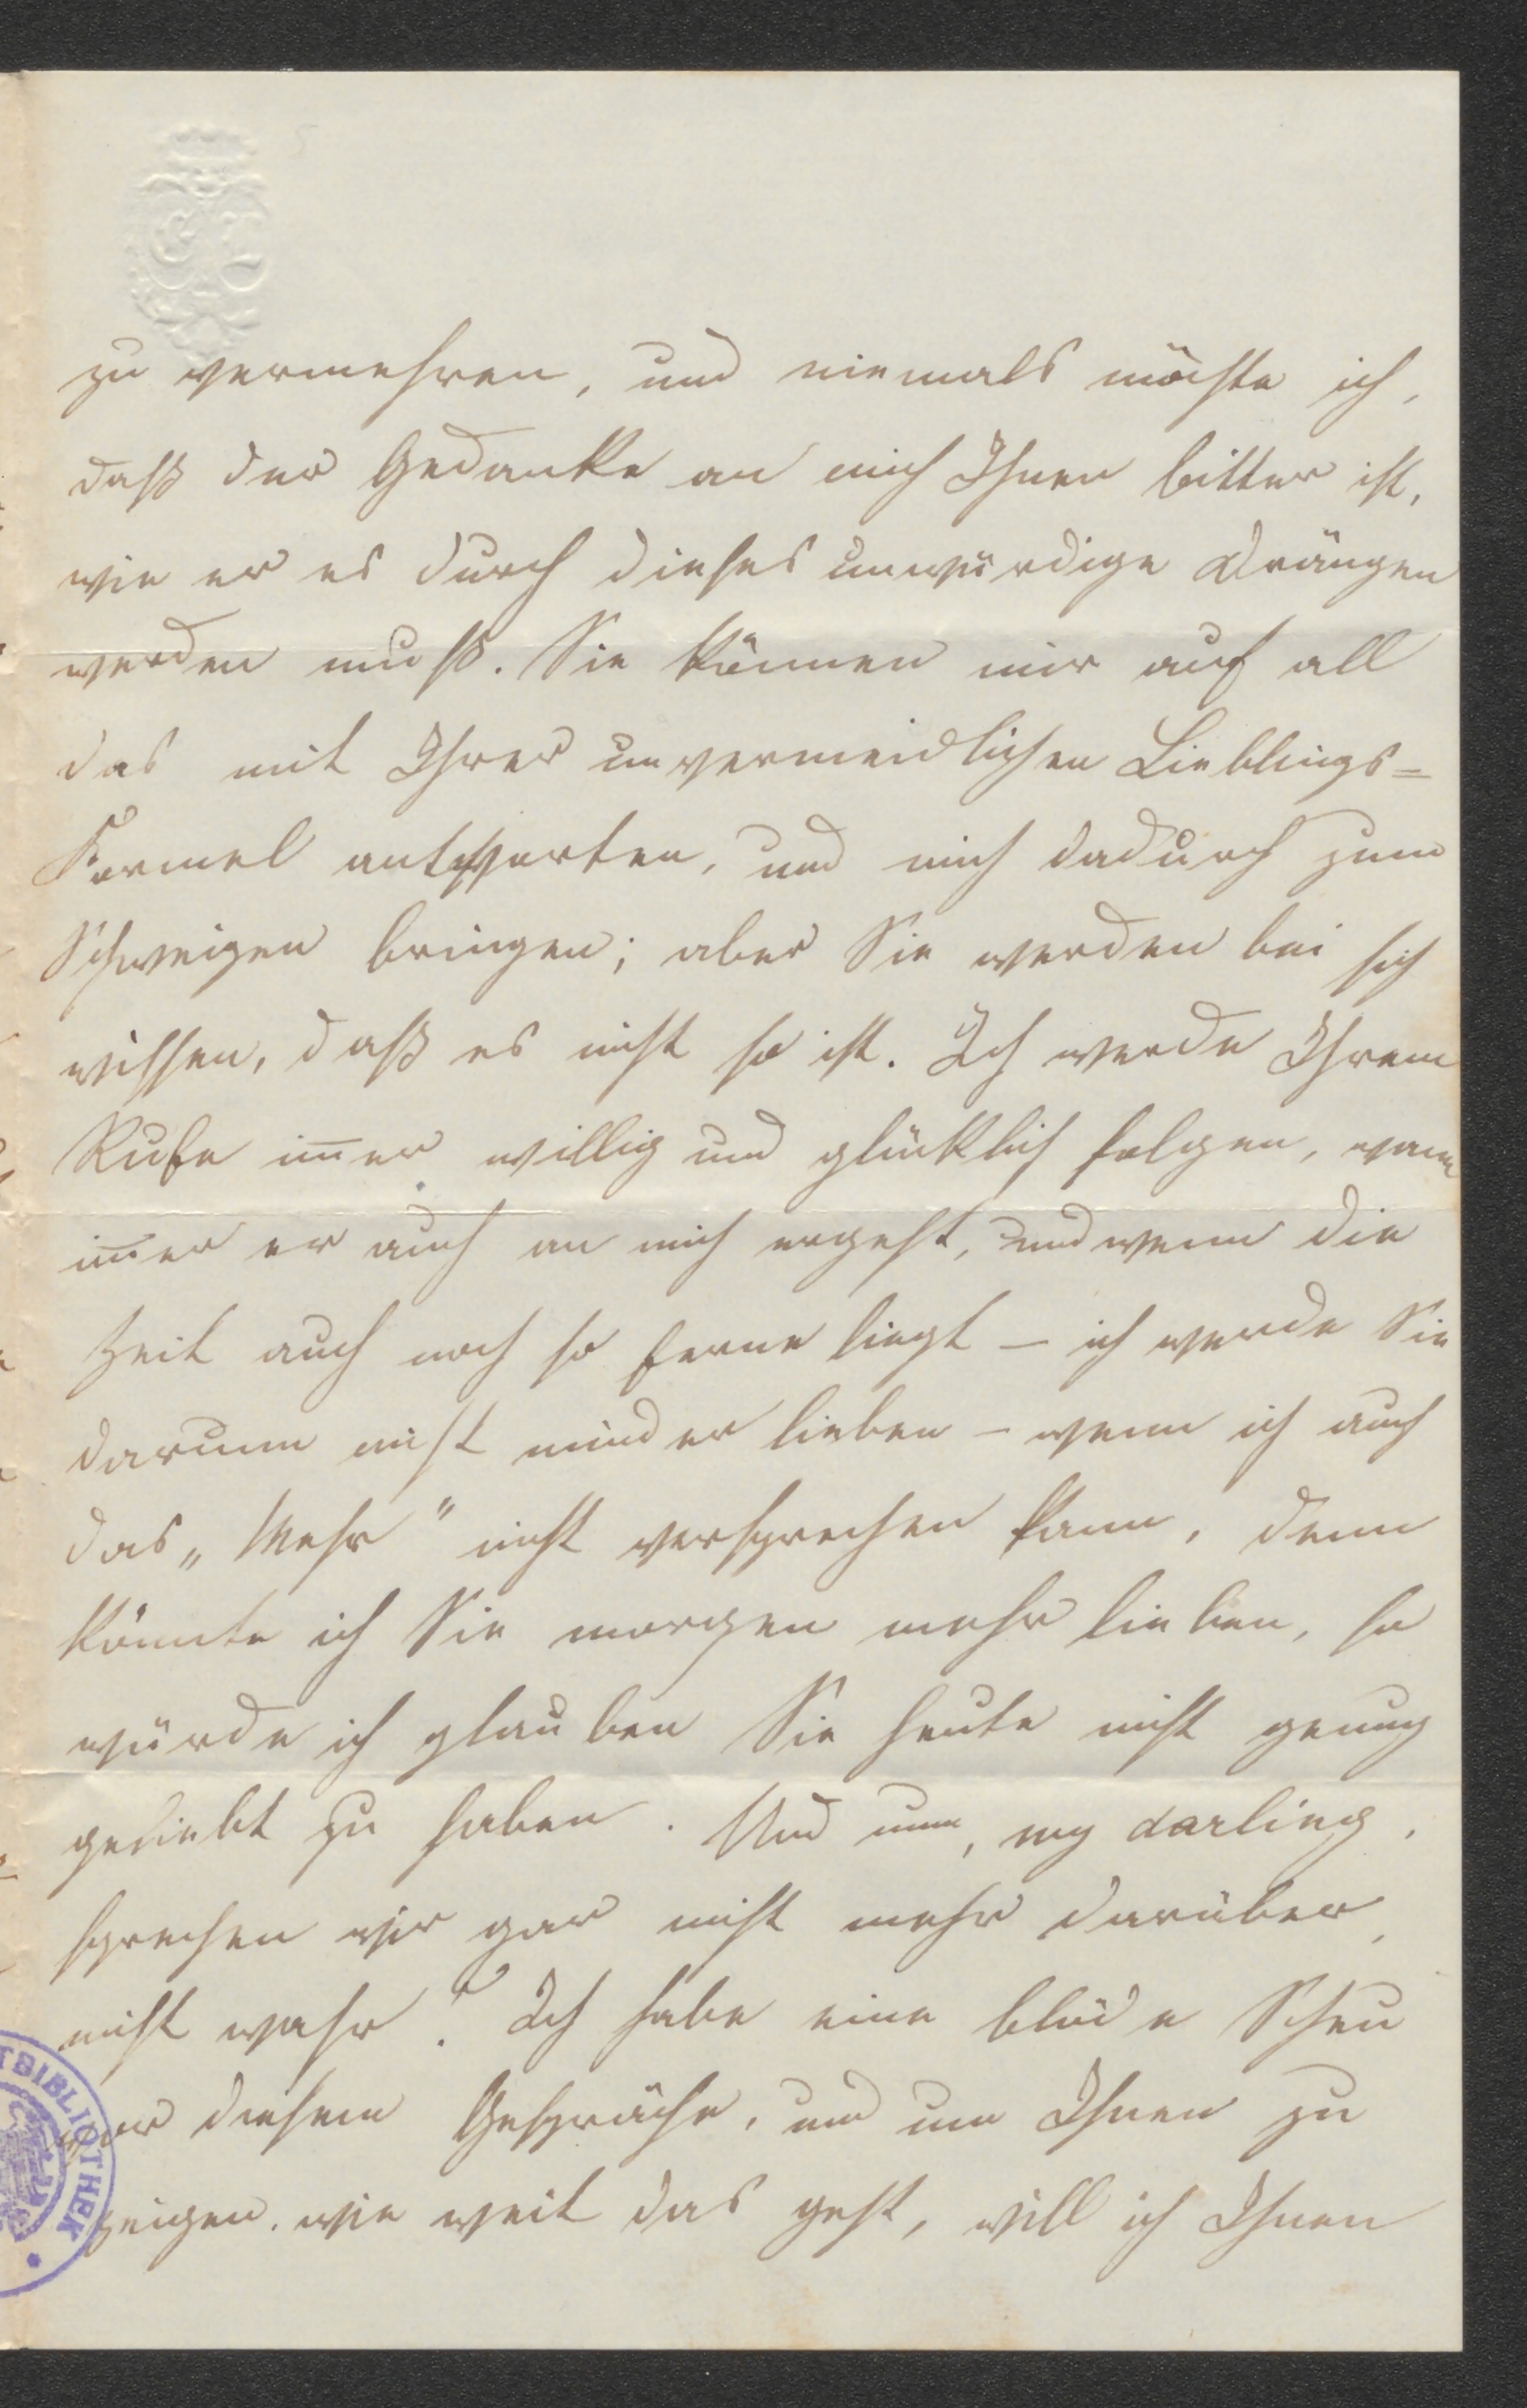 zu vermehren, und niemals möchte ich,
daß der Gedanke an mich Ihnen bitter ist,
wie er es durch dieses unwürdige Drängen
werden muß. Sie können mir auf all
das mit Ihrer unvermeidlichen Lieblings=
Formel antworten, und mich dadurch zum
Schweigen bringen; aber Sie werden bei sich
wissen, daß es nicht so ist. Ich werde Ihrem
Rufe im̅er willig und glücklich folgen, wann
im̅er er auch an mich ergeht, und wenn die
Zeit auch noch so ferne liegt – ich werde Sie
darum nicht minder lieben – wenn ich auch
das „Mehr" nicht versprechen kann, denn
könnte ich Sie morgen mehr lieben, so
würde ich glauben Sie heute nicht genug
geliebt zu haben. Und nun, my darling,
sprechen wir gar nicht mehr darüber,
nicht wahr? Ich habe eine blöde Scheu
vor diesem Gespräche, und um Ihnen zu
zeigen, wie weit das geht, will ich Ihnen
TBIBLIOTHEK